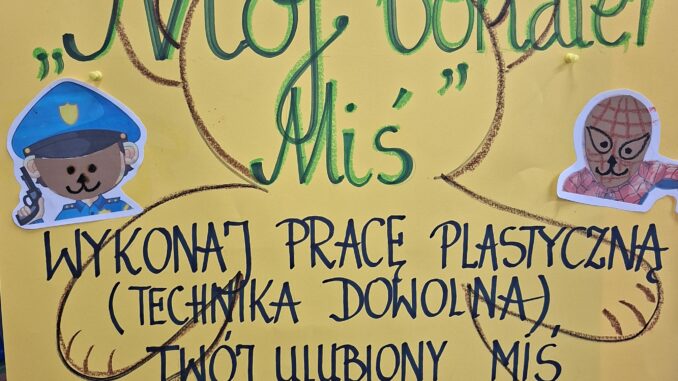 „Mój bohater
Miś”
WYKONAJ PRACĘ PLASTYCZNĄ
(TECHNIKA DOWOLNA),
TWÓJ ULUBIONY MIŚ